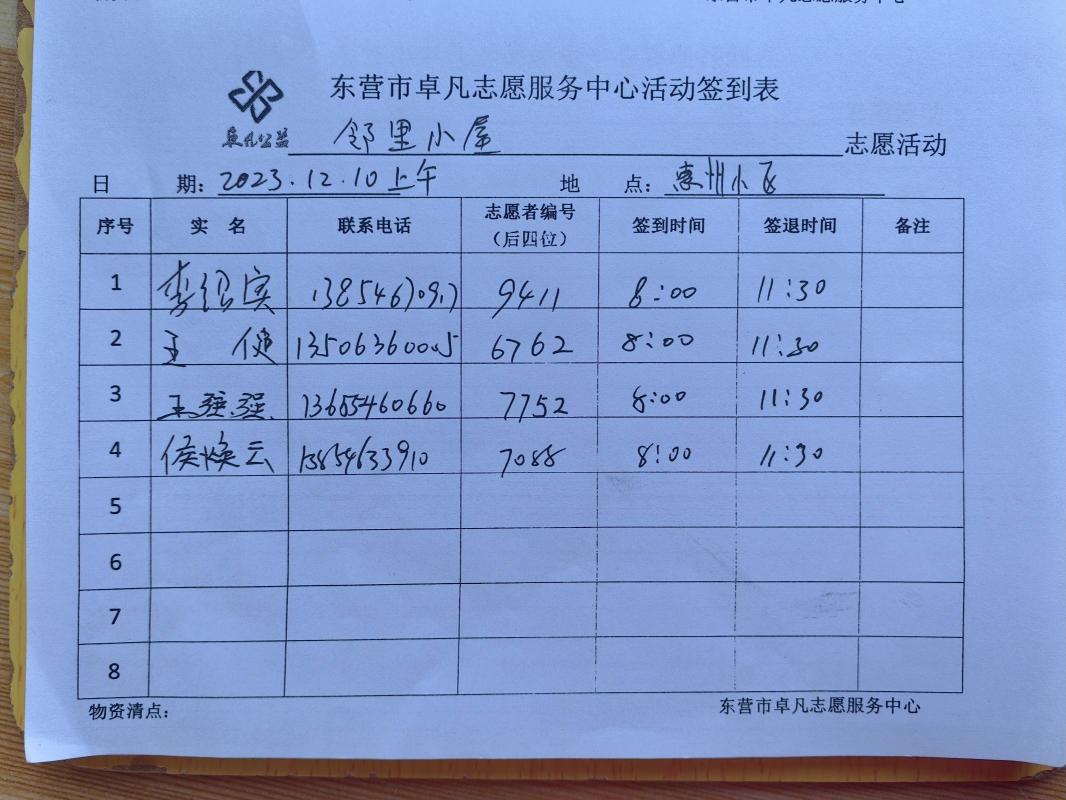 东营市卓凡志愿服务中心活动签到表
卓凡公益 邻里小屋 志愿活动
日 期：2023.12.10上午 地 点：惠州小区
序号 实 名 联系电话 志愿者编号（后四位） 签到时间 签退时间 备注
1 李绍宾 9411 8:00 11:30
2 王 健 13506360005 6762 8:00 11:30
3 王强强 13655460660 7752 8:00 11:30
4 侯焕云 13854633910 7088 8:00 11:30
5
6
7
8
物资清点： 东营市卓凡志愿服务中心